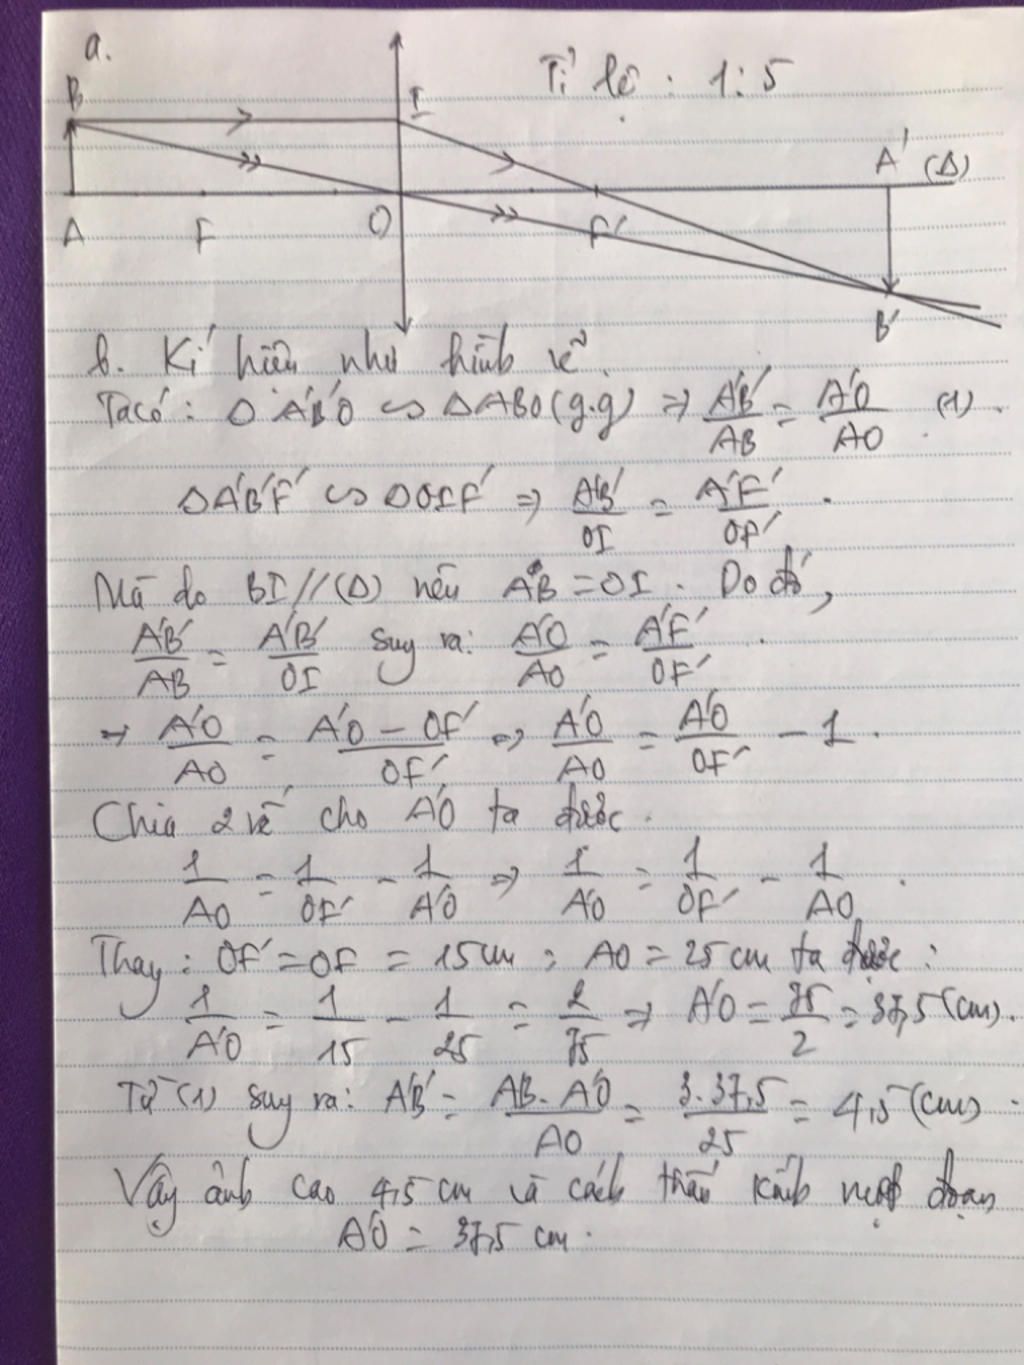 a.
Tỉ lệ : 1:5
B I
A' (Δ)
A F O F'
B'
b. Kí hiệu như hình vẽ.
Ta có: Δ A'B'O ∽ ΔABO (g.g) ⇒ A'B'/AB = A'O/AO (1).
ΔA'B'F' ∽ ΔOIF' ⇒ A'B'/OI = A'F'/OF'.
Mà do BI//(Δ) nên AB = OI. Do đó,
A'B'/AB = A'B'/OI suy ra: A'O/AO = A'F'/OF'.
⇒ A'O/AO = A'O - OF'/OF' ⇒ A'O/AO = A'O/OF' - 1.
Chia 2 vế cho A'O ta được.
1/AO = 1/OF' - 1/A'O ⇒ 1/A'O = 1/OF' - 1/AO.
Thay: OF' = OF = 15cm ; AO = 25cm ta được:
1/A'O = 1/15 - 1/25 = 2/75 ⇒ A'O = 75/2 = 37,5 (cm).
Từ (1) suy ra: A'B' = AB. A'O/AO = 3.37,5/25 = 4,5 (cm).
Vậy ảnh cao 4,5 cm và cách thấu kính một đoạn
A'O = 37,5 cm.